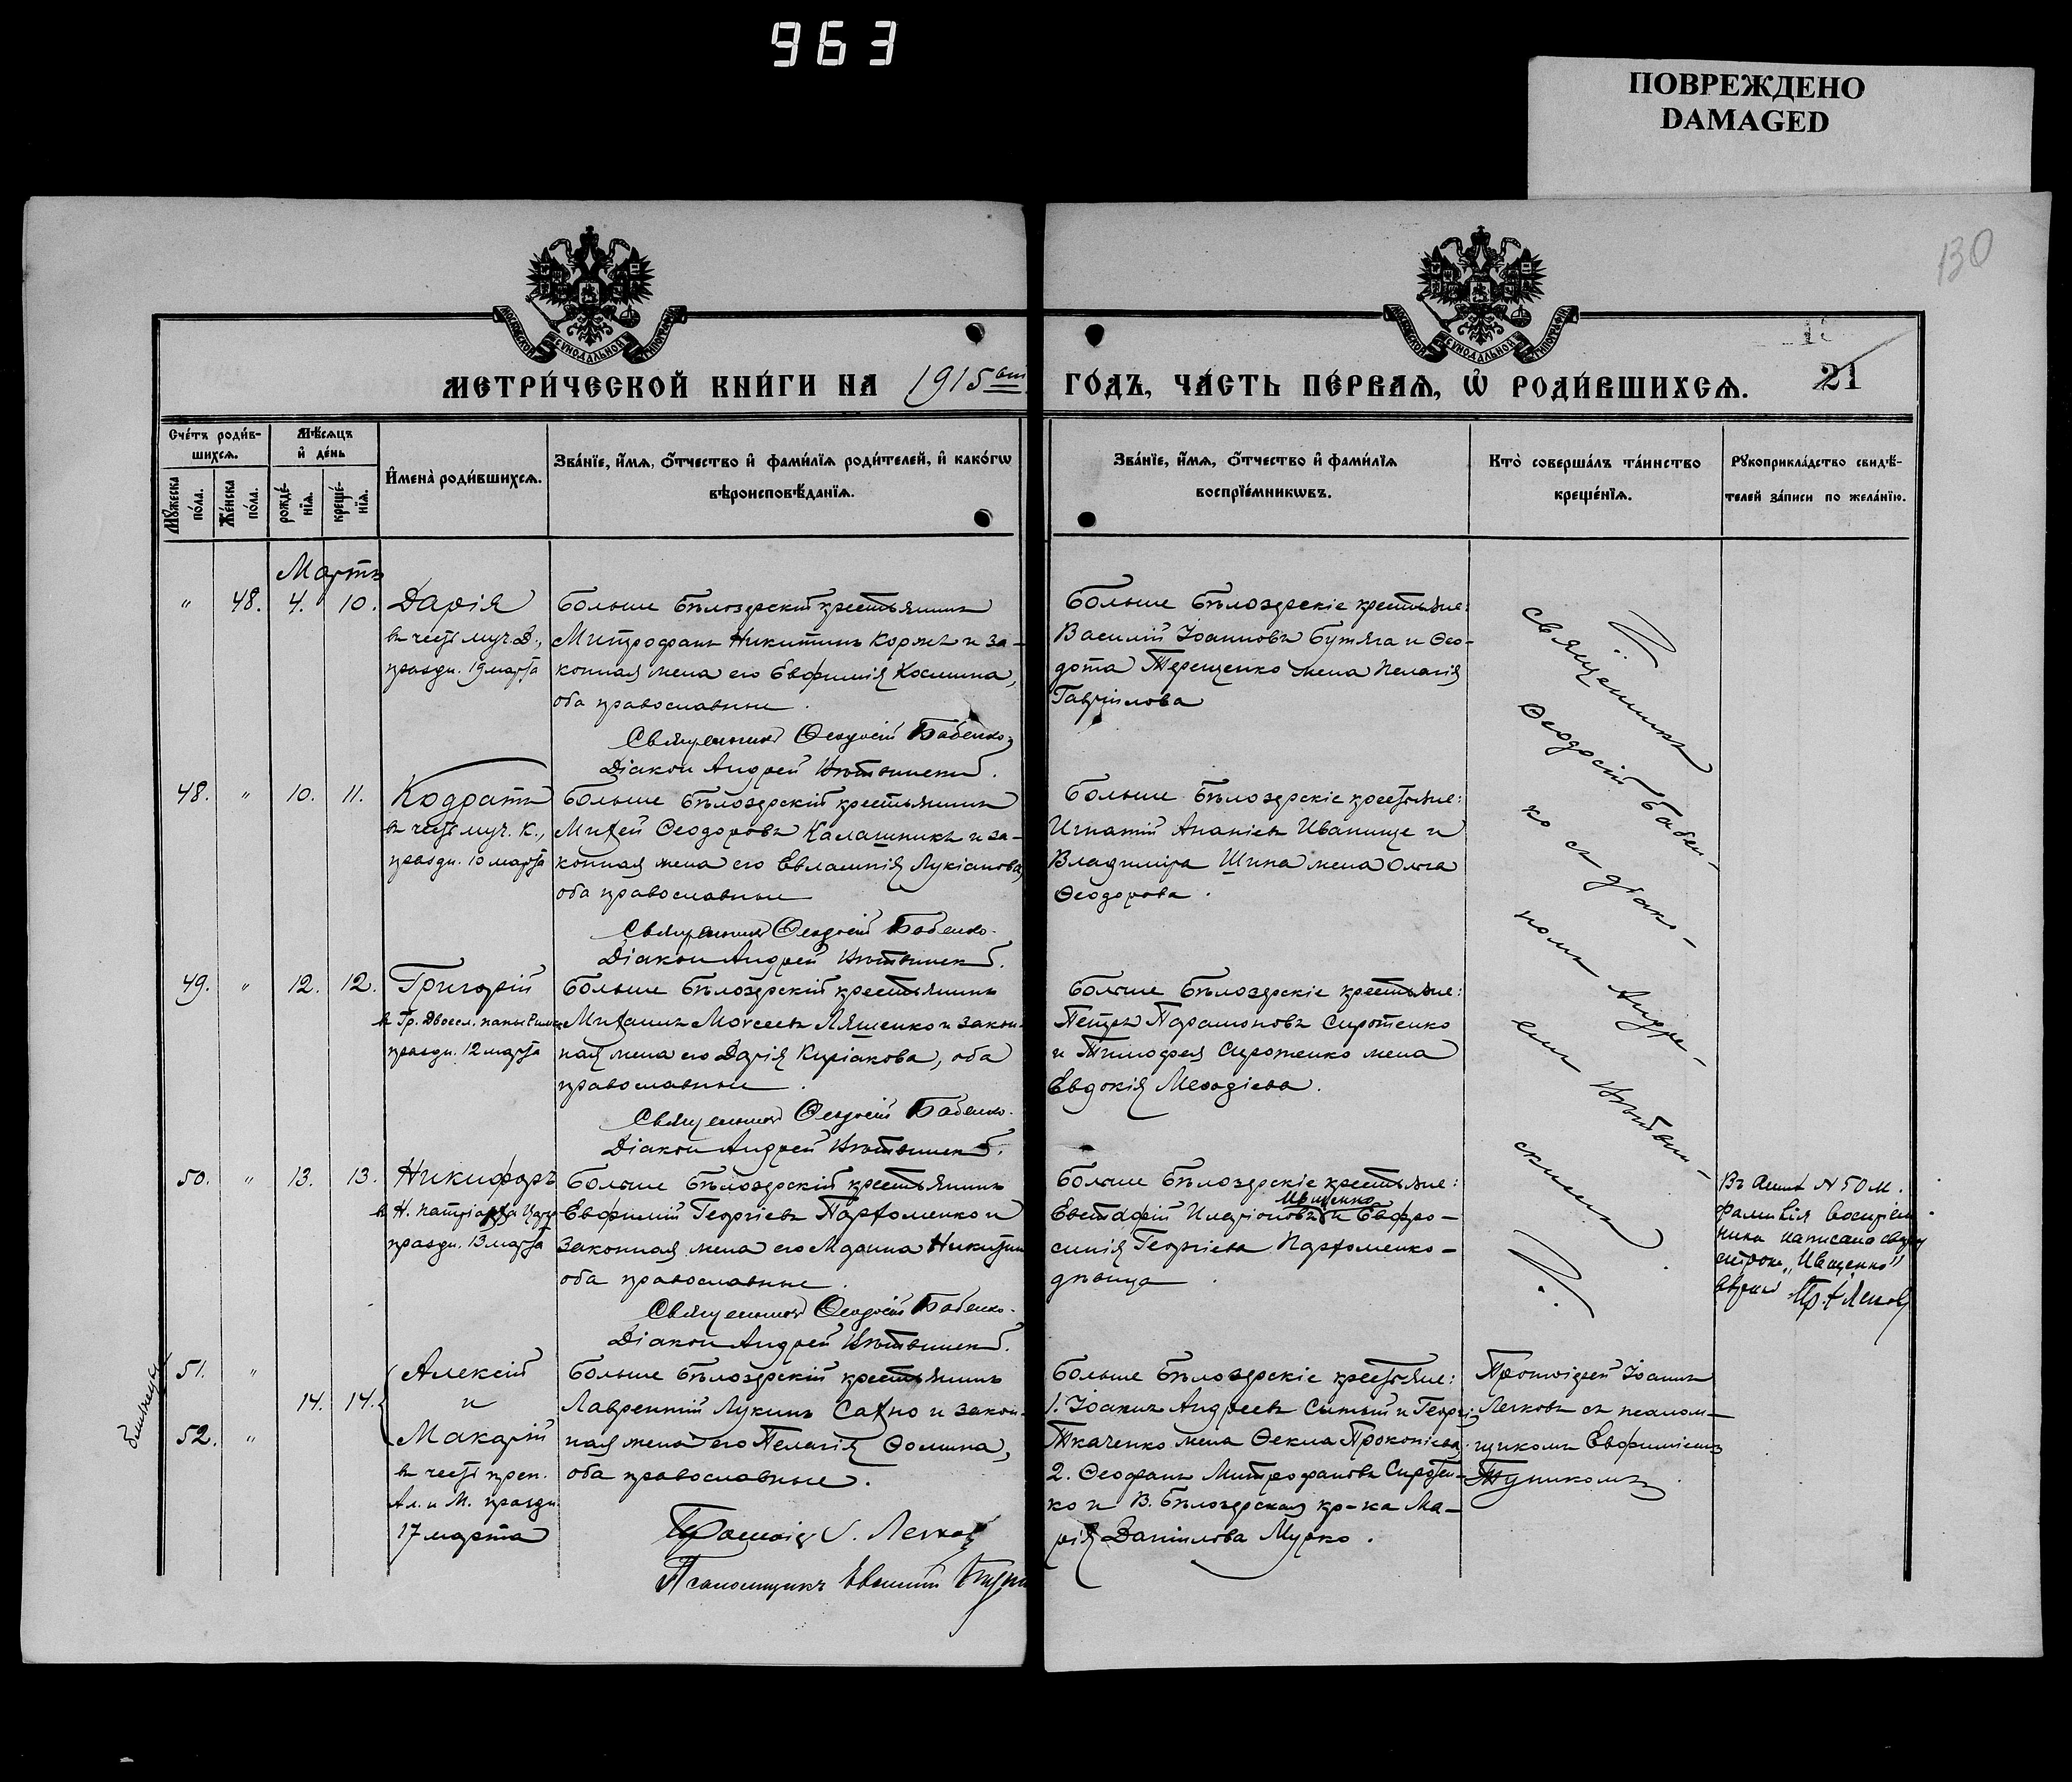 963
ПОВРЕЖДЕНО
DAMAGED
130
МОСКОВСКОЙ СѴНОДАЛЬНОЙ ТИПОГРАФІИ
МОСКОВСКОЙ СѴНОДАЛЬНОЙ ТИПОГРАФІИ
МЕТРИ́ЧЕСКОЙ КНИ́ГИ НА 1915
ГО́ДЪ, ЧА́СТЬ ПЕ́РВАѦ, Ѡ҆ РОДИ́ВШИХСѦ.
21
Сче́тъ роди́в-
шихсѧ.
Мѣ́сѧцъ
и҆ де́нь
Мꙋ́жеска по́ла.
Же́нска по́ла.
рожде́-нїѧ.
креще́-нїѧ.
И҆мена̀ роди́вшихсѧ.
Зва́нїе, и҆́мѧ, ѻ҆́тчество и҆ фами́лїѧ роди́телей, и҆ како́гѡ
вѣроисповѣ́данїѧ.
Зва́нїе, и҆́мѧ, ѻ҆́тчество и҆ фами́лїѧ
воспрїе́мникѡвъ.
Кто̀ соверша́лъ та́инство
креще́нїѧ.
Рꙋкоприкла́дство свидѣ́-
телей за́писи по жела́нїю.
Мартъ
" 48. 4. 10.
Дарія
въ честь муч. Д.,
праздн. 19 марта
Больше Бѣлозерскій крестьянинъ
Митрофанъ Никитинъ Коржъ и за-
конная жена его Евфимія Космина,
оба православные.
Священникъ Ѳеодосій Бабенко,
Діаконъ Андрей
Больше Бѣлозерскіе крестьяне:
Василій Іоанновъ Бутяга и Ѳео-
дота Терещенко жена Пелагія
Гавріилова
Священникъ
Ѳеодосій Бабен-
ко съ діако-
номъ Андре-
емъ
скимъ
48. " 10. 11.
Кодратъ
въ честь муч. К.,
праздн. 10 марта
Больше Бѣлозерскій крестьянинъ
Михей Ѳеодоровъ Калашникъ и за-
конная жена его Евлампія Лукіанова,
оба православные
Священникъ Ѳеодосій Бабенко.
Діаконъ Андрей
Больше Бѣлозерскіе крестьяне:
Игнатій Ананіевъ Иванище и
Владиміра Шина жена Ольга
Ѳеодорова.
49. " 12. 12.
Григорій
въ Гр. Двоесл. папы Римск.
праздн. 12 марта
Больше Бѣлозерскій крестьянинъ
Михаилъ Моѵсеевъ Ляшенко и закон-
ная жена его Дарія Киріакова, оба
православные.
Священникъ Ѳеодосій Бабенко.
Діаконъ Андрей
Больше Бѣлозерскіе крестьяне:
Петръ Парамоновъ Сиротенко
и Тимофея Сиротенко жена
Евдокія Меѳодіева.
50. " 13. 13.
Никифоръ
въ Н. патріарха Царь
праздн. 13 марта
Больше Бѣлозерскій крестьянинъ
Евфимій Георгіевъ Пархоменко и
законная жена его Марина Никитина
оба православные.
Священникъ Ѳеодосій Бабенко.
Діаконъ Андрей
Больше Бѣлозерскіе крестьяне:
Иващенко
Евстафій Иларіоновъ и Евфро-
синія Георгіева Пархоменко-
дѣвица.
Въ актѣ N 50 м.
фамилія воспріем
ника написана сверху
строки „Иващенко"
вѣрно
близнецы
51. "
14. 14.
52. "
Алексій
и
Макарій
въ честь преп.
Ал. и М. праздн.
17 марта
Больше Бѣлозерскій крестьянинъ
Лаврентій Лукинъ Сахно и закон-
ная жена его Пелагія Ѳомина,
оба православные.
Протоіер. І. Легков
Псаломщикъ Евфимій
Больше Бѣлозерскіе крестьяне:
1. Іоаннъ Андреевъ Сытый и Георгія
Ткаченко жена Ѳекла Прокопіева;
2. Ѳеофанъ Митрофановъ Сиротен-
ко и В. Бѣлозерская кр-ка Ма-
рія Даніилова Мурко.
Протоіерей Іоаннъ
Легковъ съ псалом-
щикомъ Евфиміемъ